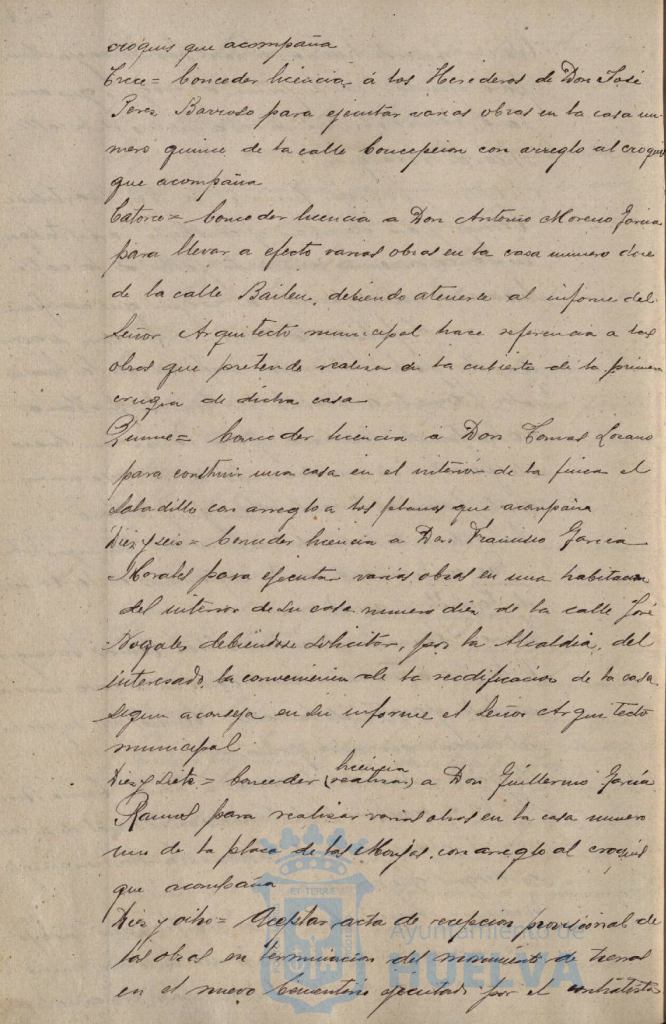 croquis que acompaña
Trece = Conceder licencia á los Herederos de Don José
Perez Barroso para ejecutar varias obras en la casa nu-
mero quince de la calle Concepcion con arreglo al croquis
que acompaña
Catorce = Conceder licencia a Don Antonio Moreno Garcia
para llevar a efecto varias obras en la casa numero doce
de la calle Bailen, debiendo atenerse al informe del
Señor Arquitecto municipal hace referencia a las
obras que pretende realizar en la cubierta de la primera
crugia de dicha casa
Quince = Conceder licencia á Don Tomas Lozano
para construir una casa en el interior de la finca el
Saladillo con arreglo a los planos que acompaña
Diez y seis = Conceder licencia a Don Francisco Garcia
Morales para ejecutar varias obras en una habitacion
del interior de su casa numero diez de la calle José
Nogales debiendose solicitar, por la Alcaldia, del
interesado, la conveniencia de la reedificacion de la casa
segun aconseja en su informe el Señor Arquitecto
municipal
Diez y siete = Conceder (realizar) licencia a Don Guillermo García
Ramos para realizar varias obras en la casa numero
uno de la plaza de las Monjas, con arreglo al croquis
que acompaña
Diez y ocho = Aceptar acta de recepcion provisional de
las obras en terminacion del movimiento de tierras
en el nuevo Cementerio ejecutado por el contratista
Ayuntamiento de
HUELVA